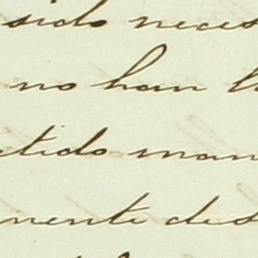 sido neces
no han
tido man
mente des